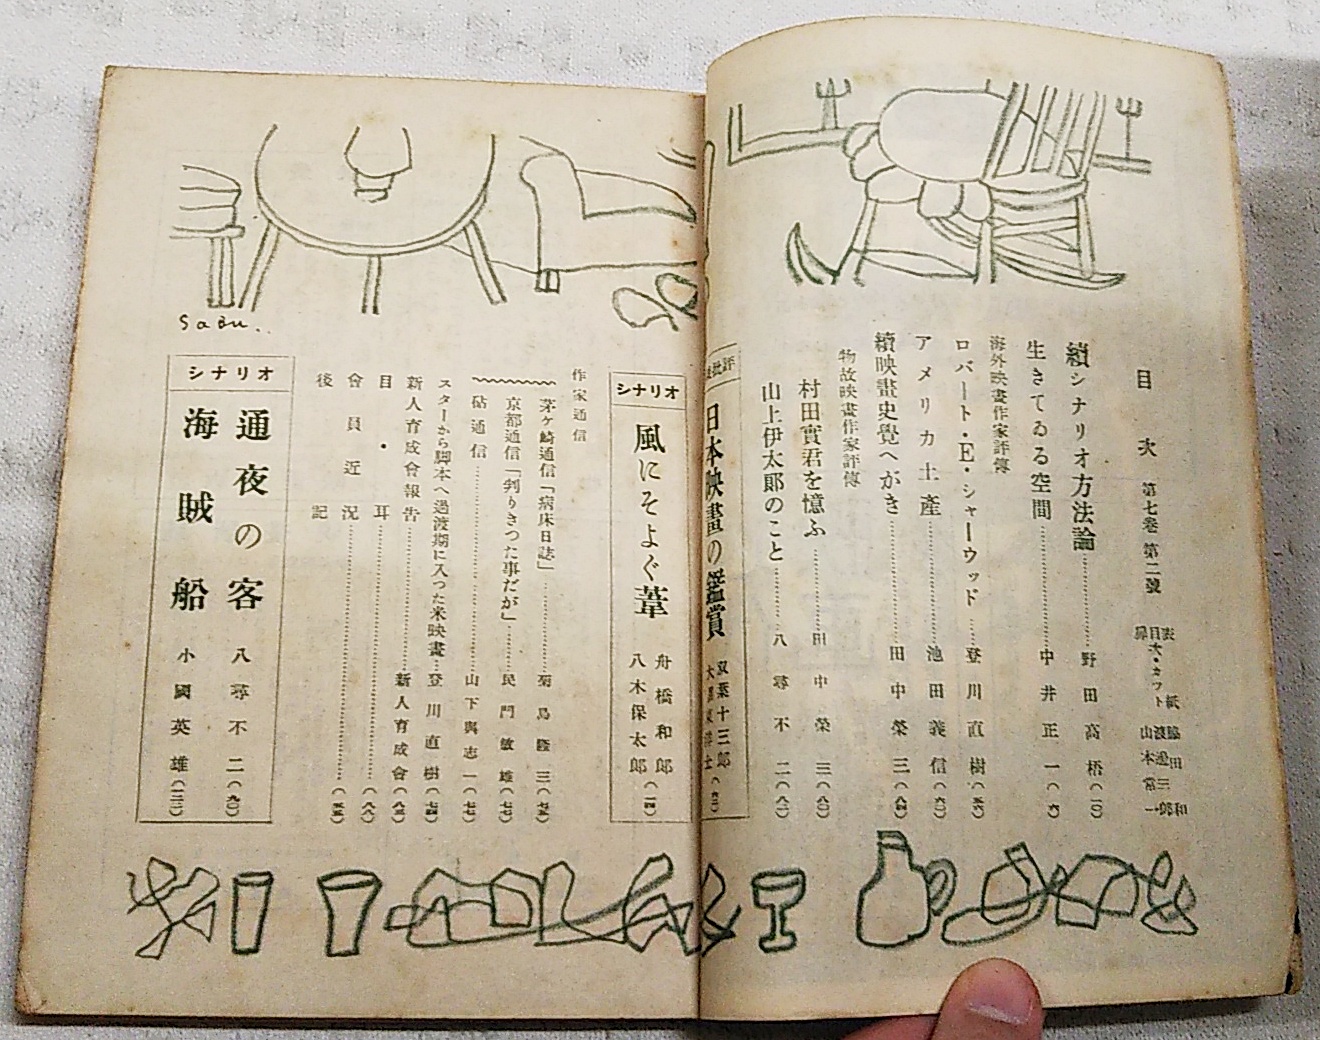 目次 第七巻 第二號
表紙 脇田和
目次・カット 渡辺三郎
扉 山本常一
續シナリオ方法論 野田高梧(一〇)
生きてゐる空間 中井正一(六)
海外映畫作家評傳
ロバート・E・シャーウッド 登川直樹
アメリカ土産 池田義信
續映畫史覺へがき 田中榮三
物故映畫作家評傳
村田實君を憶ふ 田中榮三(八〇)
山上伊太郎のこと 八尋不二(八二)
批評
日本映畫の鑑賞
双葉十三郎
シナリオ
風にそよぐ葦
舟橋和郎
八木保太郎
作家通信
茅ケ崎通信「病床日誌」 菊島隆三
京都通信「判りきつた事だが」 民門敏雄
砧通信 山下與志一
スターから脚本へ過渡期に入った米映畫 登川直樹
新人育成會報告 新人育成會
目・耳
會員近況
後記
シナリオ
通夜の客 八尋不二(九〇)
海賊船 小國英雄
SaBu..